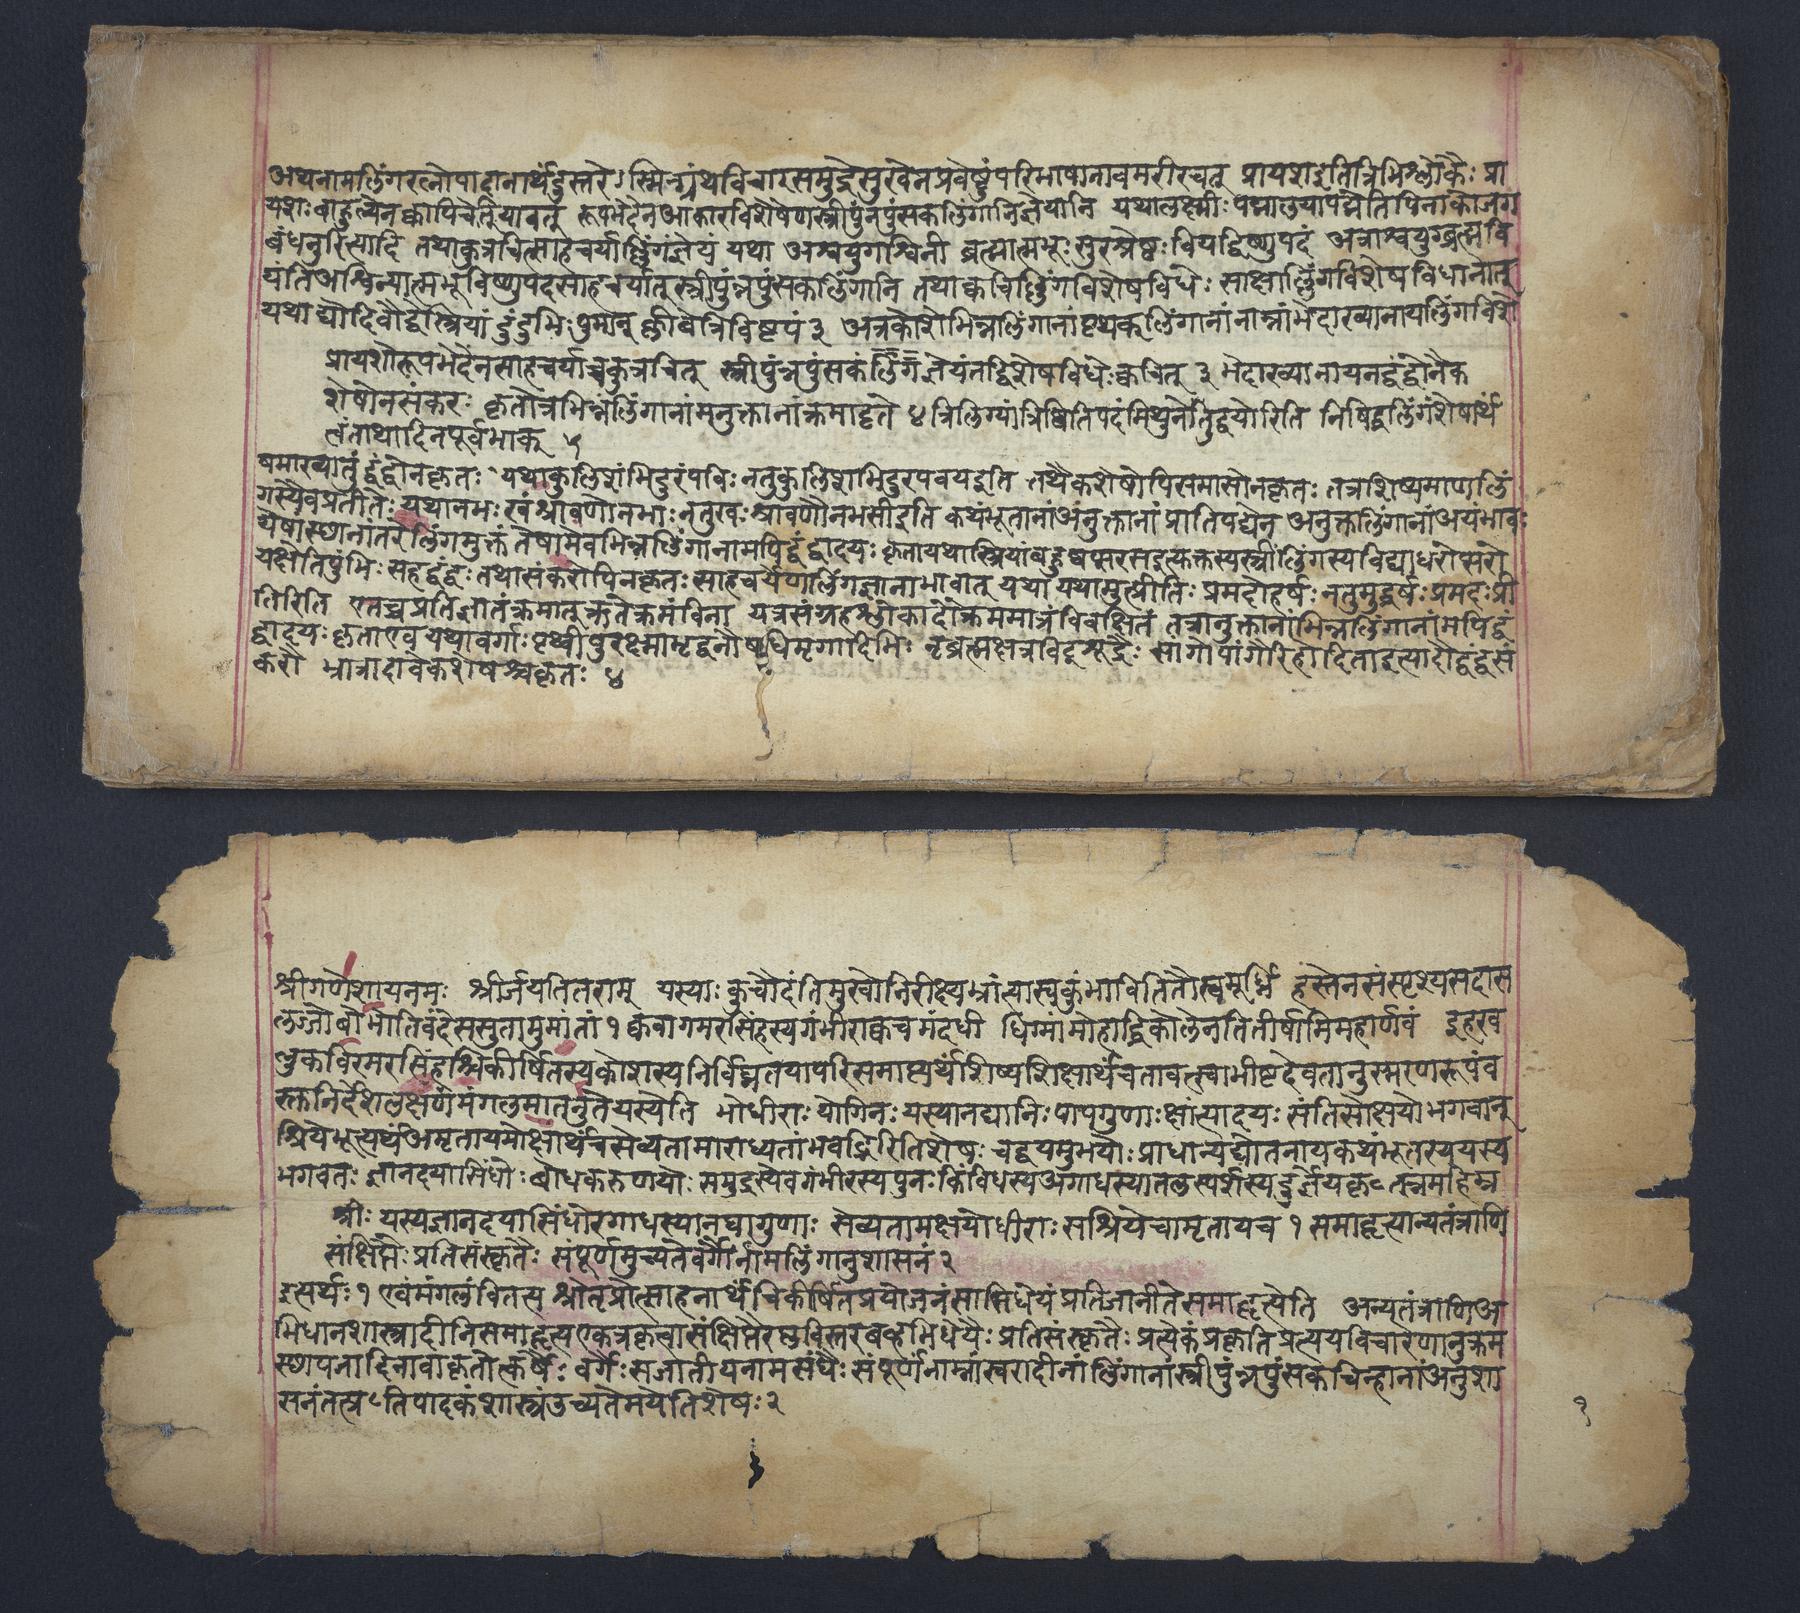 अथनामलिंगरत्नोपादानार्थंदुस्तरेऽस्मिन्ग्रंथविचारसमुद्रेसुखेनप्रवेष्टुंपरिभाषानावमरीरचत् प्रायशइतित्रिभिःश्लोकैः प्रा
यशःबाहुल्येनक्वापिचेतियावत् रूपभेदेनआकारविशेषेणस्त्रीपुंनपुंसकलिंगानिज्ञेयानि यथालक्ष्मीःपद्मालयापद्मेतिपिनाकोऽजग
बंधनुरित्यादि तथाकुत्रचित्साहचर्याल्लिंगंज्ञेयं यथा अश्वयुगाश्विनी ब्रह्मात्मभूःसुरश्रेष्ठःवियद्विष्णुपदं अत्राश्वयुग्ब्रह्मवि
यंतिअश्विन्यात्मभूविष्णुपदसाहचर्यात्स्त्रीपुंन्नपुंसकलिंगानि तथाक्वचिल्लिंगविशेषविधेः साक्षाल्लिंगविशेषविधानात्
यथाद्योदिवौद्वेस्त्रियां दुंदुभिःपुमान् क्लीबेत्रिविष्टपं ३ अत्रकोशेभिन्नलिंगानांपृथक्लिंगानांनाम्नांभेदाख्यानायलिंगविशे
प्रायशोरूपभेदेनसाहचर्याच्चकुत्रचित् स्त्रीपुंन्नपुंसकंलिंगंज्ञेयंतद्विशेषविधेःक्वचित् ३ भेदाख्यानायनद्वंद्वोनैक
शेषोनसंकरः कृतोत्रभिन्नलिंगानांमनुक्तानांक्रमादृते ४ त्रिलिंग्यांत्रिष्वितिपदंमिथुनेतुद्वयोरिति निषिद्धलिंगंशेषार्थं
त्वंताथादिनपूर्वभाक् ५
षमाख्यातुंद्वंद्वोनकृतः यथाकुलिशंभिदुरंपविः नतुकुलिशभिदुरपवयइति तथैकशेषोपिसमासोनकृतः तत्रशिष्यमाणलिं
गस्यैवप्रतीतेः यथानभःखंश्रावणोनभाः नतुखःश्रावणौनभसीइति कथंभूतानांअनुक्तानां प्रातिपद्येन अनुक्तलिंगानांअयंभावः
येषांस्थानांतरेलिंगमुक्तं तेषामेवभिन्नलिंगानामपिद्वंद्वादयः कृतायथास्त्रियांबहुष्वप्सरसइत्युक्तस्यस्त्रीलिंगस्यविद्याधरोप्सरो
यक्षेतिपुंभिः सहद्वंद्वः तथासंकरोपिनकृतः साहचर्येणलिंगज्ञानाभावात् यथा यथामुत्प्रीतिः प्रमदोहर्षः नतुमुद्धर्षःप्रमदःप्री
तिरिति एतच्चप्रतिज्ञातंक्रमात्क्रतेक्रमंविना यत्रसंग्रहश्लोकादौक्रममात्रंविवक्षितं तत्रानुक्तानांभिन्नलिंगानांमपिद्वं
द्वादयः कृताएव यथावर्गाः पृथ्वीपुरक्ष्माभृद्वनौषधिमृगादिभिः नृब्रह्मक्षत्रविट्शूद्रैः सांगोपांगैरिहोदिताइत्यादौद्वंद्वसं
करौ भ्रात्रादावेकशेषश्चकृतः ४
श्रीगणेशायनमः श्रीर्जयतितराम् यस्याः कुचौदंतिमुखोनिरीक्ष्यभ्रांत्यास्वकुंभावितितौस्वमूर्ध्नि हस्तेनसंस्पृश्यसदास
लज्जोबोभोतिवंदेससुतामुमांतां १ क्ववागमरसिंहस्यगंभीराक्वचमंदधी धिग्मांमोहाद्धिकोलेनतितीर्षामिमहार्णवं इहखव
लुकविरमरसिंहश्चिकीर्षितस्यकोशस्यनिर्विघ्नतयापरिसमाप्त्यर्थंशिष्यशिक्षार्थंचतावत्स्वाभीष्टदेवतानुस्मरणरूपंव
स्तुनिर्देशलक्षणंमंगलमातनुतेयस्येति भोधीराः योगिनः यस्यानद्यानिःपापगुणाःक्षांत्यादयः संतिसोक्षयोभगवान्
श्रियेभूत्यर्थंअमृतायमोक्षार्थंचसेव्यतामाराध्यतांभवद्भिरितिशेषः चद्वयमुभयोःप्राधान्यद्योतनायकथंभूतस्ययस्य
भगवतः ज्ञानदयासिंधोः बोधकरुणयोः समुद्रस्येवगंभीरस्यपुनः किंविधस्यअगाधस्यातलस्पर्शस्यदुर्ज्ञेयकृत्स्नमहिम्न
श्रीः यस्यज्ञानदयासिंधोरगाधस्यानघागुणाः सेव्यतामक्षयोधीराः सश्रियेचामृतायच १ समाहृत्यान्यतंत्राणि
संक्षिप्तैः प्रतिसंस्कृतैः संपूर्णमुच्यतेवर्गैर्नामलिंगानुशासनं २
इत्यर्थः १ एवंमंगलंवितत्य श्रोतृप्रोत्साहनार्थं चिकीर्षितप्रयोजनंसाभिधेयंप्रतिजानीतेसमाहृत्येति अन्यतंत्राणिअ
भिधानशास्त्रादीनिसमाहृत्यएकत्रकृत्वासंक्षिप्तैरल्पविस्तरबह्वभिधेयैः प्रतिसंस्कृतैः प्रत्येकंप्रकृतिप्रत्ययविचारेणानुक्रम
स्थापनादिनावाकृतोत्कर्षैः वर्गैःसजातीयनामसंघैः संपूर्णंनाम्नांस्वरादीनांलिंगानांस्त्रीपुंन्नपुंसकचिन्हानांअनुशा
सनंतत्प्रतिपादकंशास्त्रंउच्यतेमयेतिशेषः २
१